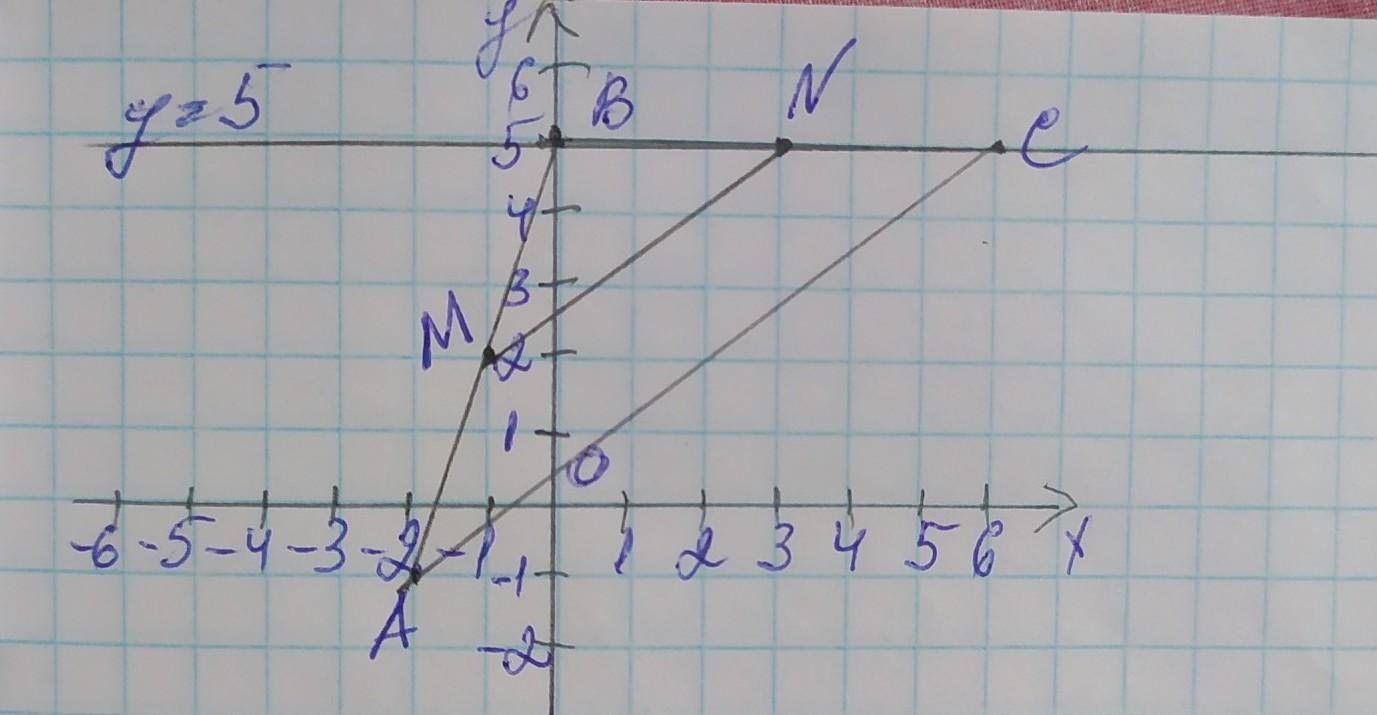 y
6
y = 5
B
N
5
C
4
3
M
2
1
O
-6 -5 -4 -3 -2 -1 1 2 3 4 5 6 x
-1
A
-2